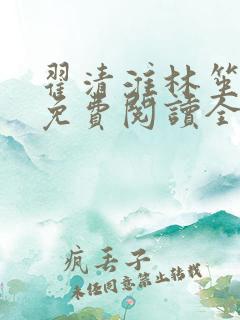 翟清淮林笙
免費閱讀全
疯丢子
未经同意禁止转载